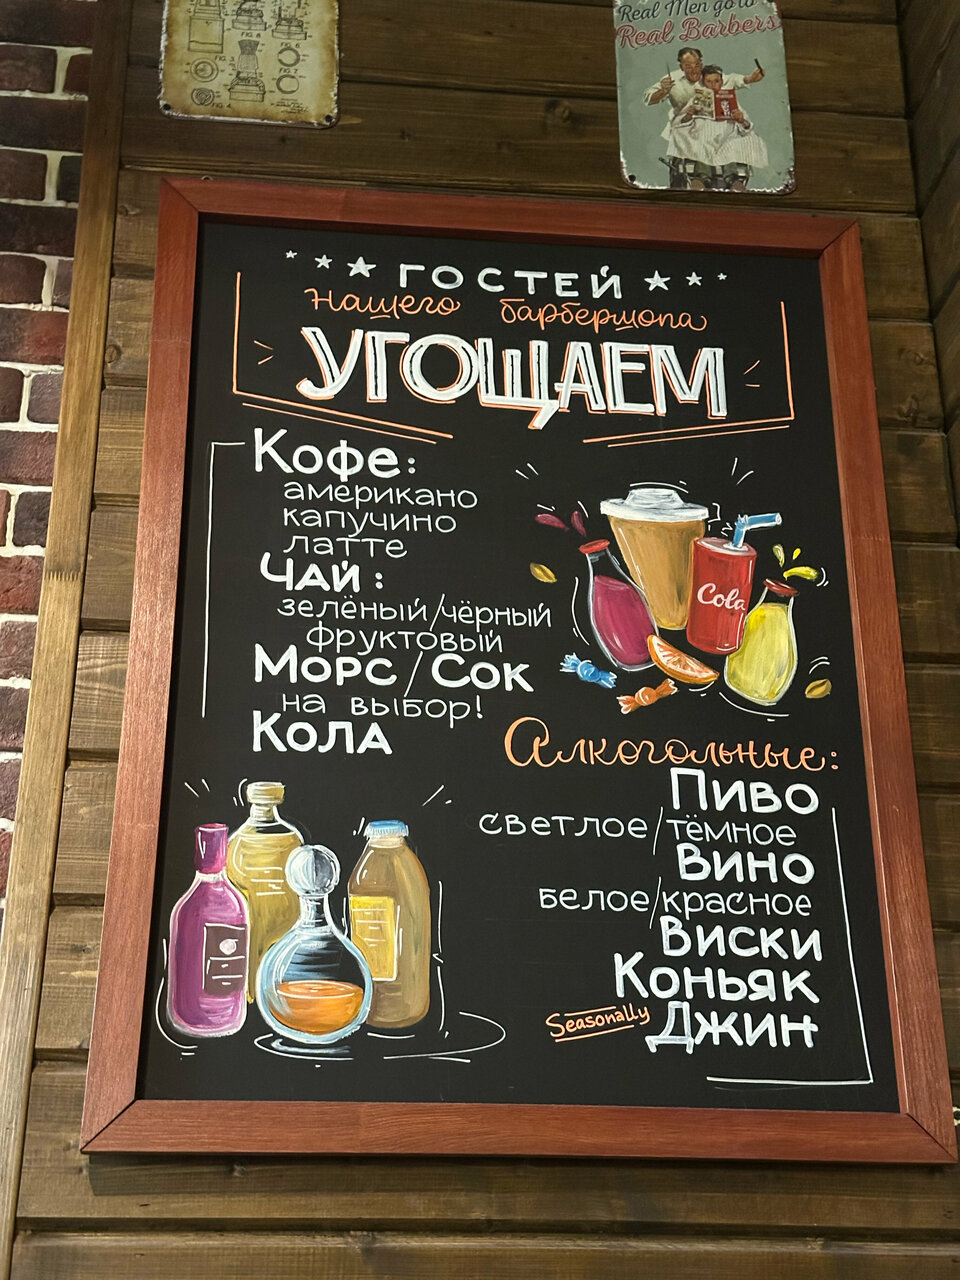 FIG. 6
FIG. 7
FIG. 3
FIG. 4
Real Men go to
Real Barbers
ГОСТЕЙ
нашего барбершопа
УГОЩАЕМ
Кофе:
американо
капучино
латте
ЧАЙ:
зелёный/чёрный
фруктовый
Морс/Сок
на выбор!
Кола
Cola
Алкогольные:
Пиво
светлое/тёмное
Вино
белое/красное
Виски
Коньяк
Seasonally Джин